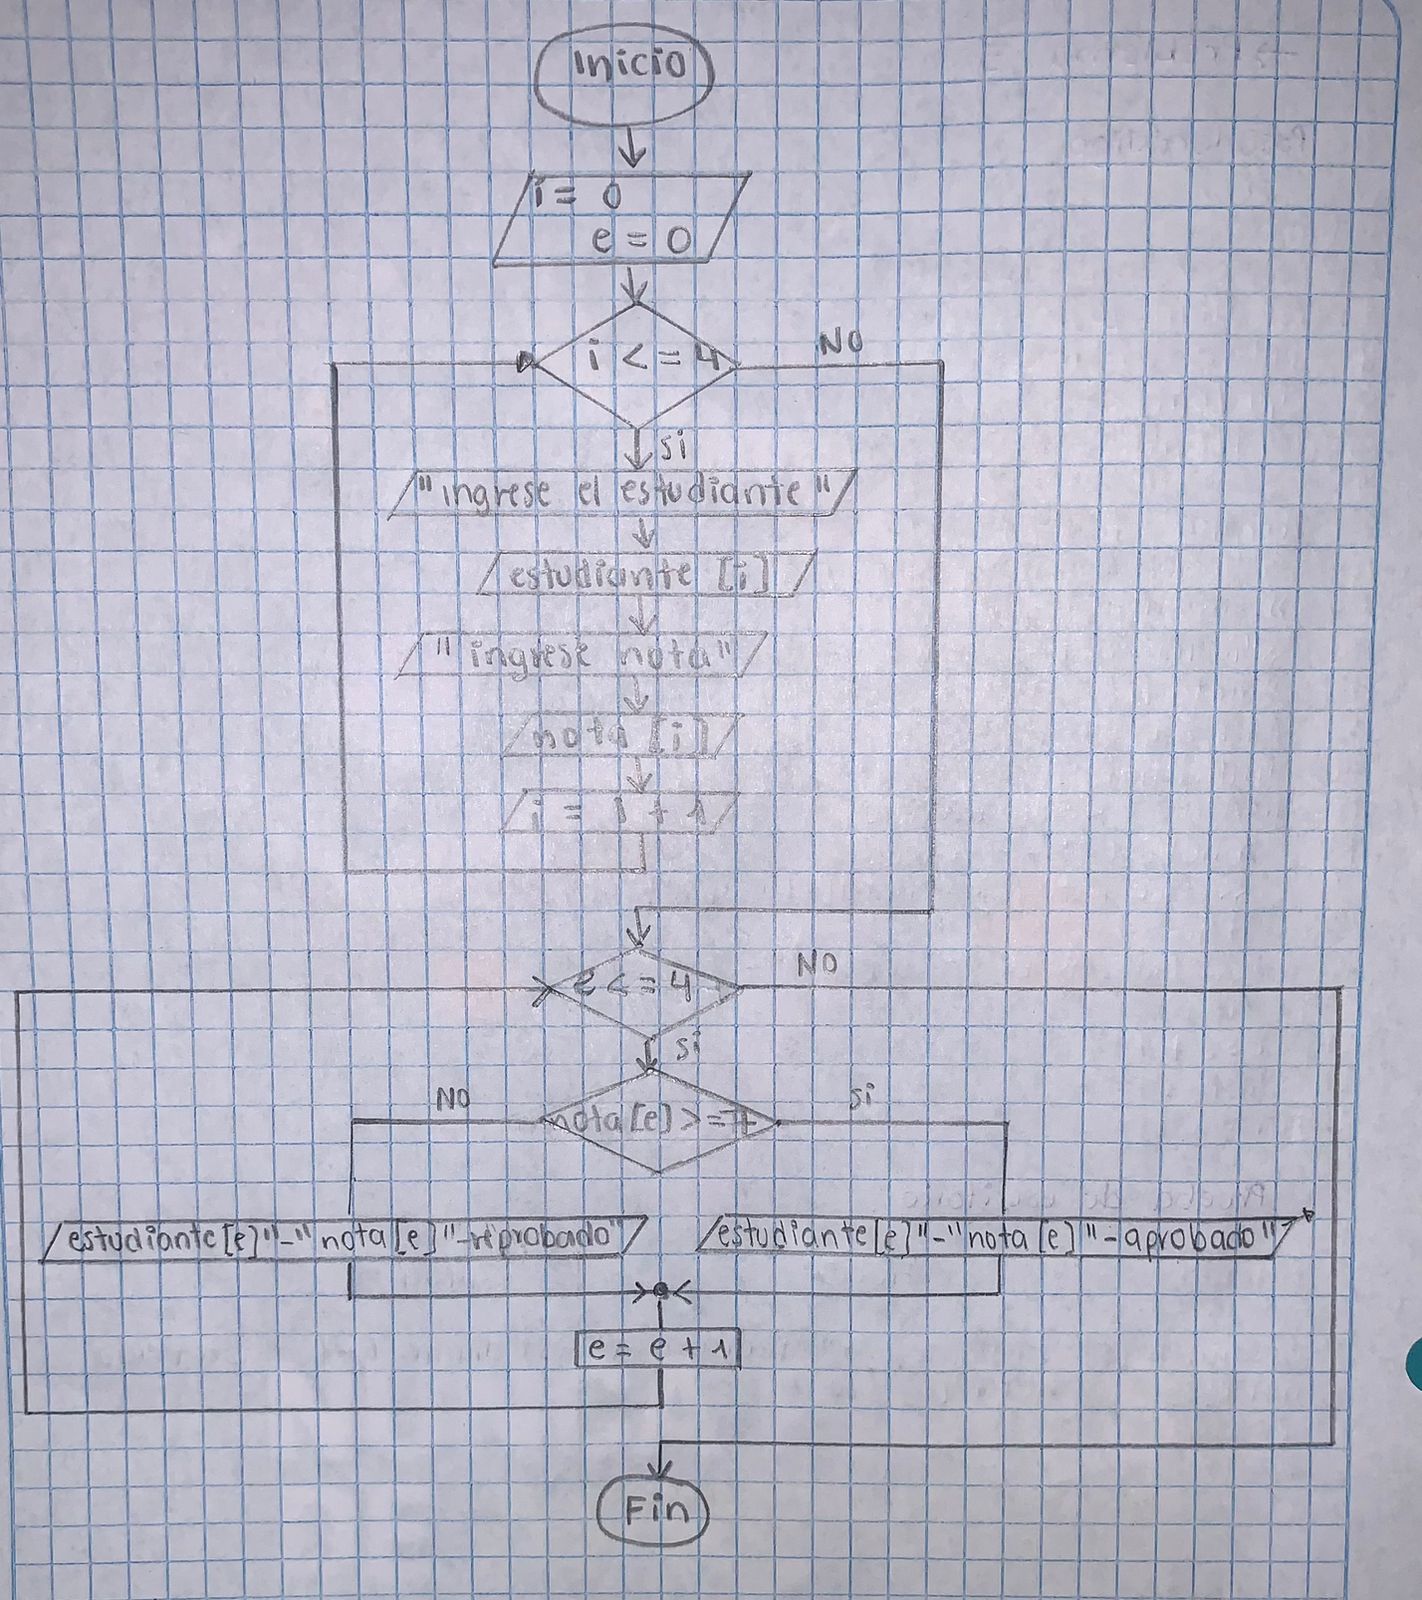 Inicio
i = 0
e = 0
i <= 4
NO
si
"ingrese el estudiante"
estudiante [i]
"ingrese nota"
nota [i]
i = i + 1
e <= 4
NO
si
nota[e] >= 7
NO
si
estudiante[e]"-"nota[e]"-reprobado"
estudiante[e]"-"nota[e]"-aprobado"
e = e + 1
Fin